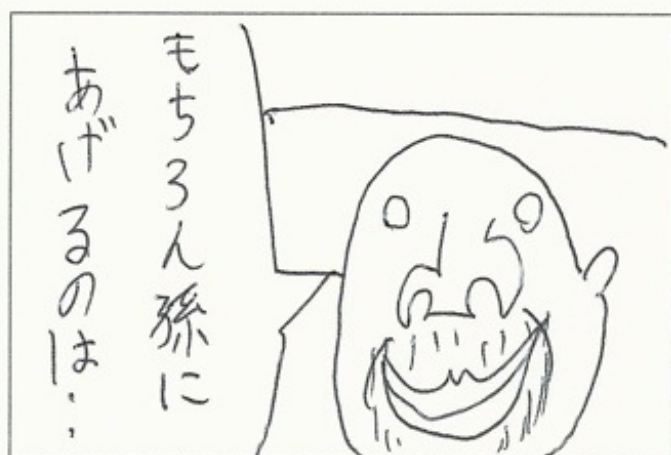 もちろん孫に
あげるのは‥